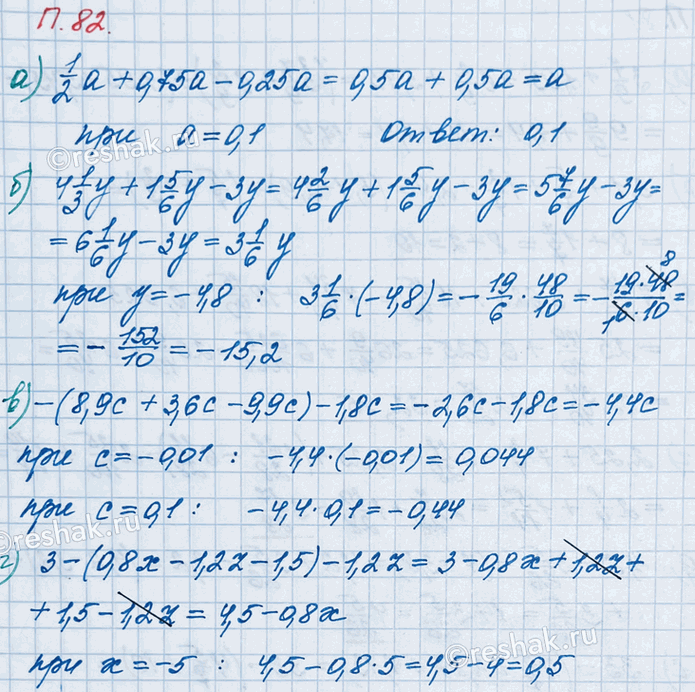 П. 82.
а) 1/2 a + 0,75a - 0,25a = 0,5a + 0,5a = a
при a = 0,1 Ответ: 0,1
б) 4 1/3 y + 1 5/6 y - 3y = 4 2/6 y + 1 5/6 y - 3y = 5 7/6 y - 3y =
= 6 1/6 y - 3y = 3 1/6 y
при y = -4,8 : 3 1/6 · (-4,8) = - 19/6 · 48/10 = - 19·48 8/1 6·10 =
= - 152/10 = -15,2
в) -(8,9c + 3,6c - 9,9c) - 1,8c = -2,6c - 1,8c = -4,4c
при c = -0,01 : -4,4 · (-0,01) = 0,044
при c = 0,1 : -4,4 · 0,1 = -0,44
г) 3 - (0,8x - 1,2z - 1,5) - 1,2z = 3 - 0,8x + 1,2z +
+ 1,5 - 1,2z = 4,5 - 0,8x
при x = -5 : 4,5 - 0,8 · 5 = 4,5 - 4 = 0,5
©reshak.ru
©reshak.ru
©reshak.ru
©reshak.ru